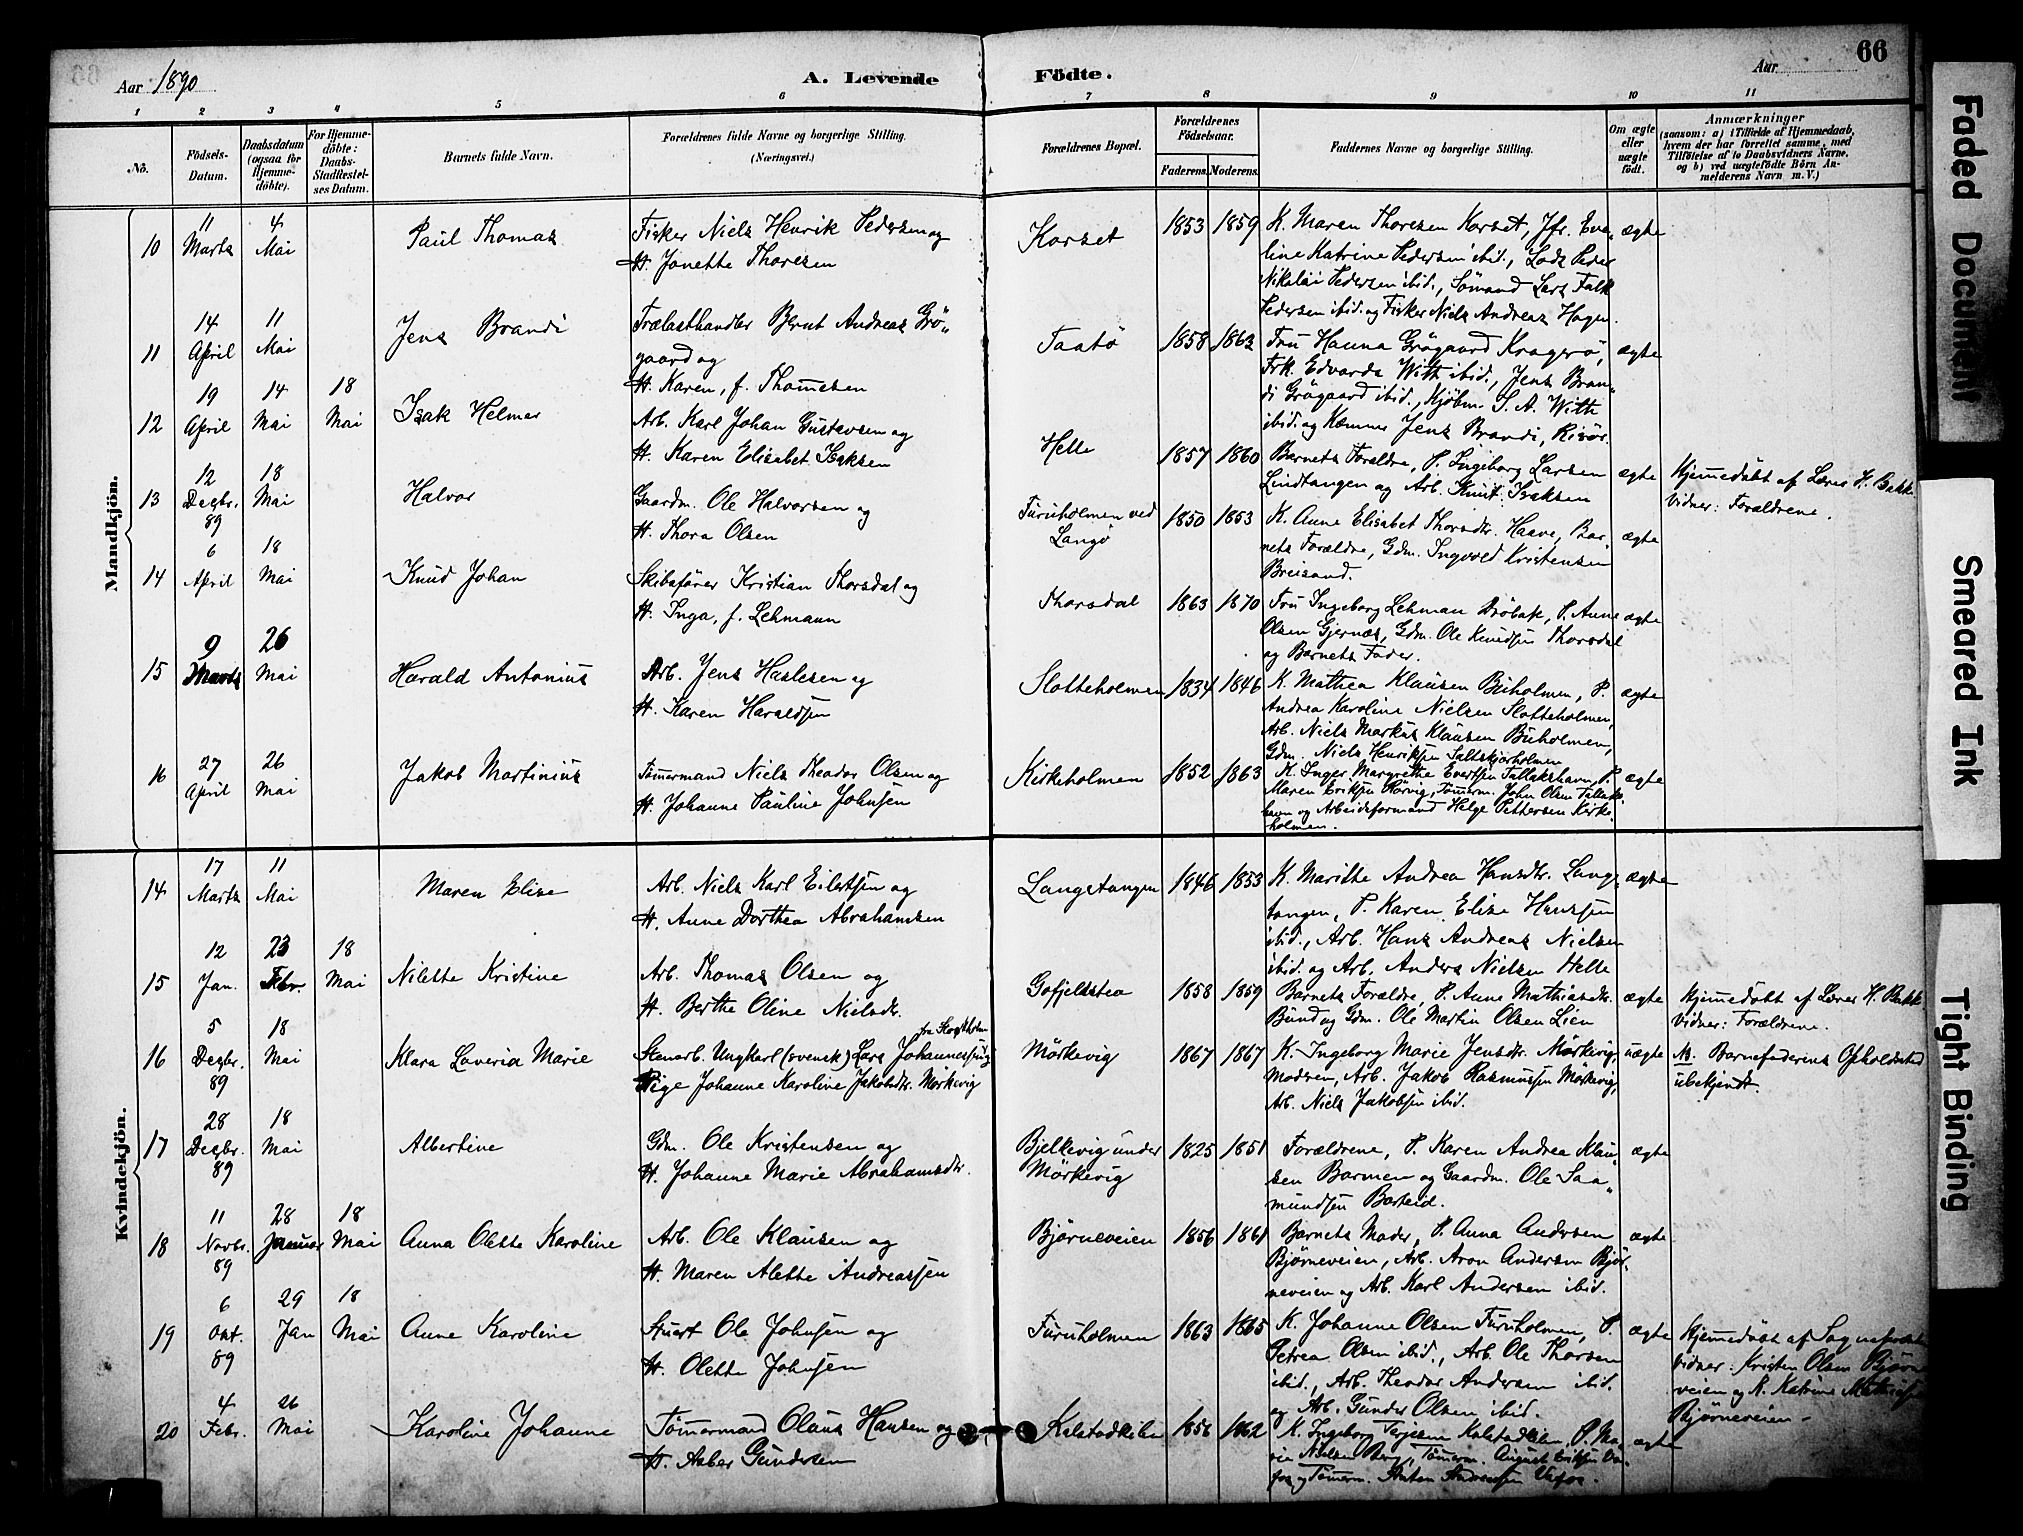 Aar 1890
A. Levende
Födte.
Aar
66
1 2 3 4 5 6 7 8 9 10 11
No.
Födsels-Datum.
Daabsdatum (ogsaa for Hjemme-döbte).
For Hjemme-döbte: Daabs-Stadfæstel-ses Datum.
Barnets fulde Navn.
Forældrenes fulde Navne og borgerlige Stilling.
(Næringsvei.)
Forældrenes Bopæl.
Forældrenes Födselsaar.
Faderens. Moderens.
Faddernes Navne og borgerlige Stilling.
Om ægte eller uægte födt.
Anmærkninger
(saasom: a) i Tilfælde af Hjemmedaab,
hvem der har forrettet samme, med
Tilföielse af to Daabsvidners Navne.
og b) ved uægtefödte Börn An-
melderens Navn m. V.)
Mandkjön.
10 11 Marts 4 Mai Paul Thomas
Fisker Niels Henrik Pedersen og
H. Jonette Thoresen
Korset 1853 1859
K. Maren Thoresen Korset, Jfr. Eve-
line Katrine Pedersen ibid., Lods Peder
Nikolai Pedersen ibid., Sömand Lars Falk
Pedersen ibid. og Fisker Niels Andreas Hagen.
ægte
11 14 April 11 Mai Jens Brandi
Trælasthandler Bernt Andreas Grö-
gaard og
H. Karen, f. Thomesen
Taatö 1858 1863
Fru Hanna Grögaard Kragerö,
Frk. Edvarda With ibid., Jens Bran-
di Grögaard ibid., Kjöbm. S. A. With
ibid. og Kæmner Jens Brandi, Risör.
ægte
12 19 April 14 Mai 18 Mai Isak Helmer
Arb. Karl Johan Gustavsen og
H. Karen Elisabet Isaksen
Helle 1857 1860
Barnets Forældre, P. Ingeborg Larsen
Lindtangen og Arb. Knut Isaksen
ægte
Hjemmedöbt af Lærer H. Bakk
Vidner: Forældrene.
13 12 Decbr. 89 18 Mai Halvor
Gaardm. Ole Halvorsen og
H. Thora Olsen
Furuholmen ved
Langö
1850 1853
K. Anne Elisabet Thorsdtr. Haave, Bar-
nets Forældre, Gdm. Ingvold Kristensen
Breisand.
ægte
14 6 April 18 Mai Knud Johan
Skibsförer Kristian Thorsdal og
H. Inga, f. Lehmann
Thorsdal 1863 1870
Fru Ingeborg Lehman Dröbak, P. Anne
Olsen Gjernæs, Gdm. Ole Knudsen Thorsdal
og Barnets Fader.
ægte
15 9 Marts 26 Mai Harald Antonius
Arb. Jens Haslesen og
H. Karen Haraldsen
Slotteholmen 1834 1846
K. Mathea Klausen Buholmen, P.
Andrea Karoline Nielsen Slotteholmen,
Arb. Niels Markus Klausen Buholmen,
Gdm. Niels Henriksen
ægte
16 27 April 26 Mai Jakob Martinius
Tömmermand Niels Theodor Olsen og
H. Johanne Pauline Johnsen
Kirkeholmen 1852 1863
K. Inger Margrethe Evertsen Tallakshavn, P.
Maren Eriksen Rörvig, Tömrm. John Olsen Tallaks-
havn og Arbeidsformand Helge Pettersen Kirke-
holmen.
ægte
Kvindekjön.
14 17 Marts 11 Mai Maren Elise
Arb. Niels Karl Eilertsen og
H. Anne Dorthea Abrahamsen
Langetangen 1846 1853
K. Marithe Andrea Hansdtr. Lang-
tangen, P. Karen Elise Hanssen
ibid., Arb. Hans Andreas Nielsen
ibid. og Arb. Anders Nielsen Helle
ægte
15 12 Jan. 23 Febr. 18 Mai Nilette Kristine
Arb. Thomas Olsen og
H. Berthe Oline Nielsdtr.
Gofjeldstea 1858 1859
Barnets Forældre, P. Anne Mathiasdtr.
Bund og Gdm. Ole Martin Olsen Lien
ægte
Hjemmedöbt af Lærer H. Bakk
Vidner: Forældrene.
16 5 Decbr. 89 18 Mai Klara Laveria Marie
Stenarb. Ungkarl (svensk) Lars Johannessen og
Pige Johanne Karoline Jakobsdtr. Mörkevig
Mörkevig 1867 1867
K. Ingeborg Marie Jensdtr. Mörkevig,
Moderen, Arb. Jakob Rasmussen Mörkevig,
Arb. Niels Jakobsen ibid.
uægte
NB. Barnefaderens Opholdssted
ubekjendt.
17 28 Decbr. 89 18 Mai Albertine
Gdm. Ole Kristensen og
H. Johanne Marie Abrahamsdtr.
Bjelkevig under
Mörkevig
1825 1851
Forældrene, P. Karen Andrea Klau-
sen Barmen og Gaardm. Ole Saa-
mundsen Barteid.
ægte
18 11 Novbr. 89 28 Januar 18 Mai Anna Olette Karoline
Arb. Ole Klausen og
H. Maren Alette Andreassen
Bjørneveien 1856 1861
Barnets Moder, P. Anna Andersen
Bjørneveien, Arb. Aron Andersen Bjør-
neveien og Arb. Karl Andersen ibid.
ægte
19 6 Okt. 89 29 Jan 18 Mai Anne Karoline
Stuert Ole Johnsen og
H. Olette Johnsen
Furuholmen 1863 1865
K. Johanne Olsen Furuholmen, P.
Petrea Olsen ibid., Arb. Ole Thorsen
ibid., Arb. Theodor Andersen ibid.
og Arb. Gunder Olsen ibid.
ægte
Hjemmedöbt af Sognepræst
Vidner: Kristen Olsen Bjørne
veien og K. Katrine Mathisen
Bjørneveien.
20 4 Febr. 26 Mai Karoline Johanne
Tömmermand Olaus Hansen og
H. Asber Gundersen
Kalstadkilen 1856 1862
K. Ingeborg Terjesen Kalstadkilen, P. Ma-
rie Nielsen Berg, Tömrm. August Eriksen Va-
fos og Tömrm. Anton Andersen Vafos.
ægte
Faded Document
Smeared Ink
Tight Binding